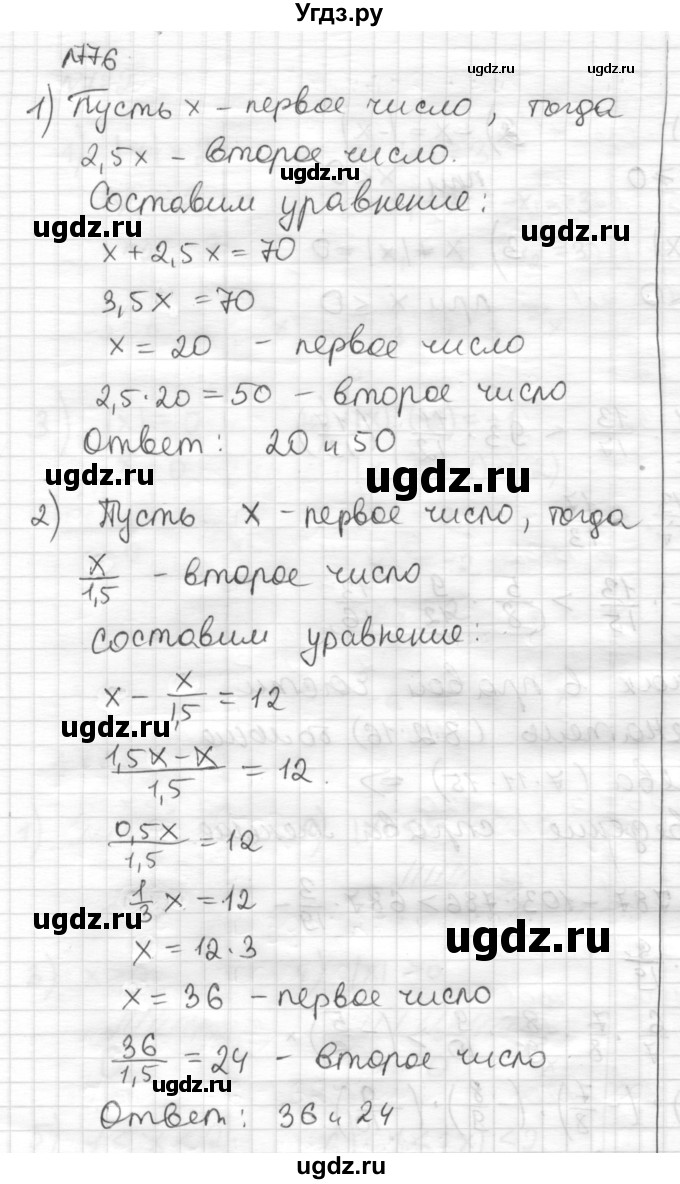 Угдз.ру
№776
1) Пусть x - первое число, тогда
2,5x - второе число.
Составим уравнение:
x + 2,5x = 70
3,5x = 70
x = 20 - первое число
2,5·20 = 50 - второе число
Ответ: 20 и 50
2) Пусть x - первое число, тогда
x/1,5 - второе число
составим уравнение:
x - x/1,5 = 12
(1,5x - x)/1,5 = 12.
0,5x/1,5 = 12
1/3 x = 12
x = 12·3
x = 36 - первое число
36/1,5 = 24 - второе число
Ответ: 36 и 24
ugdz.ru
ugdz.ru
ugdz.ru
ugdz.ru
ugdz.ru
ugdz.ru
ugdz.ru
ugdz.ru
ugdz.ru
ugdz.ru
ugdz.ru
ugdz.ru